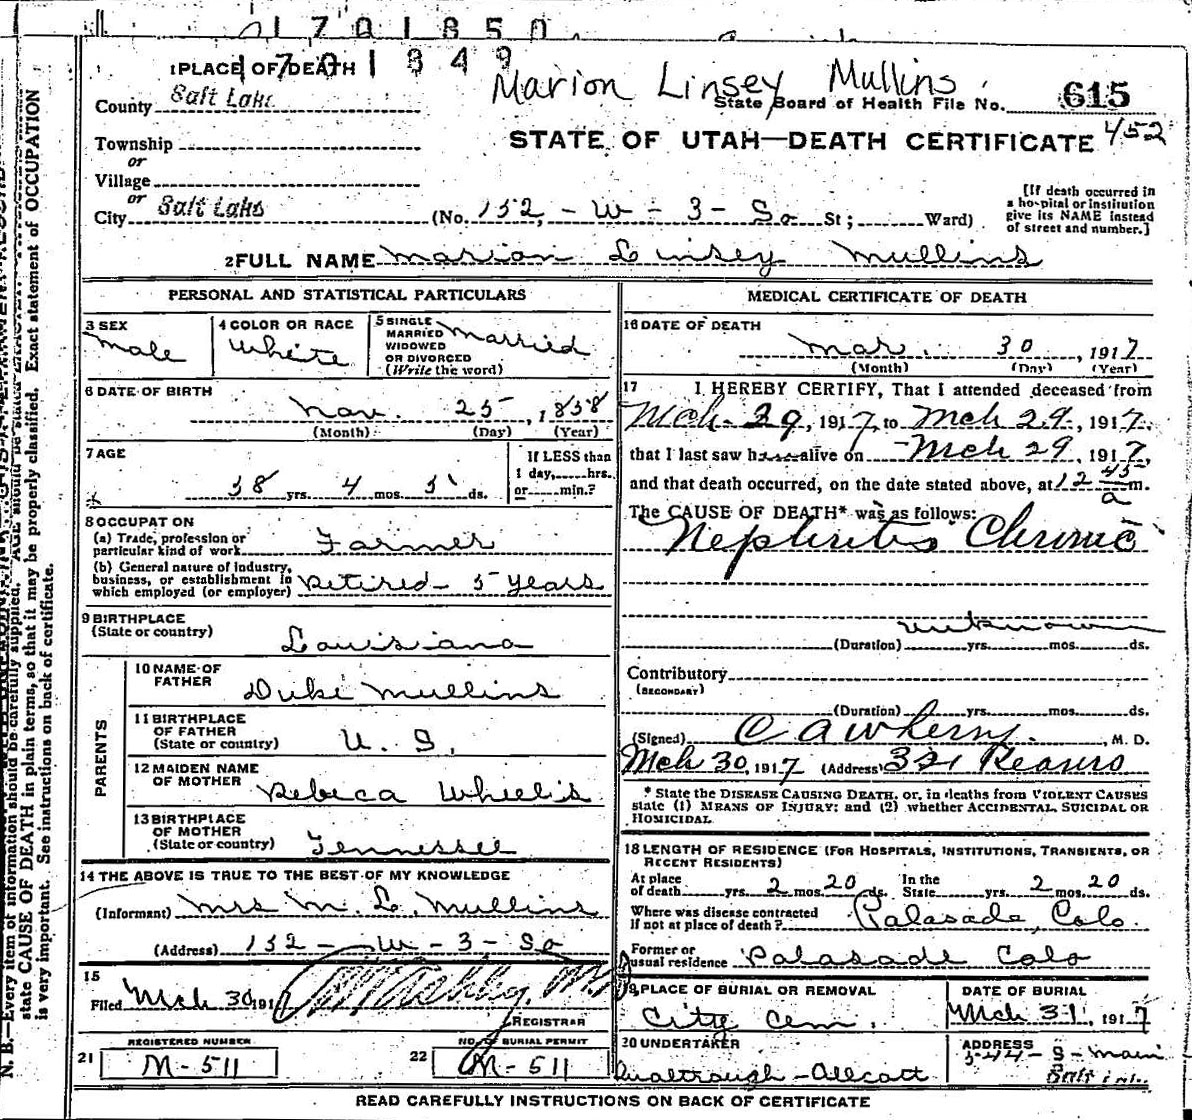 1701850
1701849
Marion Linsey Mullins
1 PLACE OF DEATH
County Salt Lake
State Board of Health File No. 615
452
STATE OF UTAH—DEATH CERTIFICATE
Township
or
Village
or
City Salt Lake (No. 152 - W - 3 - So St; Ward)
[If death occurred in
a hospital or institution
give its NAME instead
of street and number.]
2 FULL NAME Marion Linsey Mullins
PERSONAL AND STATISTICAL PARTICULARS
3 SEX
Male
4 COLOR OR RACE
White
5 SINGLE
MARRIED
WIDOWED
OR DIVORCED
(Write the word)
Married
6 DATE OF BIRTH
Nov. 25, 1858
(Month) (Day) (Year)
7 AGE
58 yrs. 4 mos. 5 ds.
If LESS than
1 day, hrs.
or min.?
8 OCCUPATION
(a) Trade, profession or
particular kind of work Farmer
(b) General nature of industry,
business, or establishment in
which employed (or employer) Retired - 5 years
9 BIRTHPLACE
(State or country) Louisiana
PARENTS
10 NAME OF
FATHER Duke Mullins
11 BIRTHPLACE
OF FATHER
(State or country) U. S.
12 MAIDEN NAME
OF MOTHER Rebeca Wheelis
13 BIRTHPLACE
OF MOTHER
(State or country) Tennessee
14 THE ABOVE IS TRUE TO THE BEST OF MY KNOWLEDGE
(Informant) Mrs M. L. Mullins
(Address) 152 - W - 3 - So
15
Filed Mch 30 191
REGISTRAR
21 REGISTERED NUMBER
M-511
22 NO. OF BURIAL PERMIT
M-511
MEDICAL CERTIFICATE OF DEATH
16 DATE OF DEATH
Mar. 30, 1917
(Month) (Day) (Year)
17 I HEREBY CERTIFY, That I attended deceased from
Mch 29, 1917, to Mch 29, 1917,
that I last saw h alive on Mch 29 1917,
and that death occurred, on the date stated above, at 12 45 a m.
The CAUSE OF DEATH* was as follows:
Nephritis Chronic
unknown
(Duration) yrs. mos. ds.
Contributory
(SECONDARY)
(Duration) yrs. mos. ds.
(Signed) C A Wherry, M. D.
Mch 30, 1917 (Address) 321 Kearns
* State the DISEASE CAUSING DEATH, or, in deaths from VIOLENT CAUSES
state (1) MEANS OF INJURY; and (2) whether ACCIDENTAL, SUICIDAL OR
HOMICIDAL
18 LENGTH OF RESIDENCE (FOR HOSPITALS, INSTITUTIONS, TRANSIENTS, OR
RECENT RESIDENTS)
At place
of death yrs. 2 mos. 20 ds.
In the
State yrs. 2 mos. 20 ds.
Where was disease contracted
if not at place of death? Palasade, Colo.
Former or
usual residence Palasade Colo
19 PLACE OF BURIAL OR REMOVAL
City Cem.
DATE OF BURIAL
Mch 31, 1917
20 UNDERTAKER
Qualtrough-Allcott
ADDRESS
544 - S - Main
Salt Lake
READ CAREFULLY INSTRUCTIONS ON BACK OF CERTIFICATE
N. B.—Every item of information should be carefully supplied. AGE should be
state CAUSE OF DEATH in plain terms, so that it may be properly classified. Exact statement of OCCUPATION
is very important. See instructions on back of certificate.